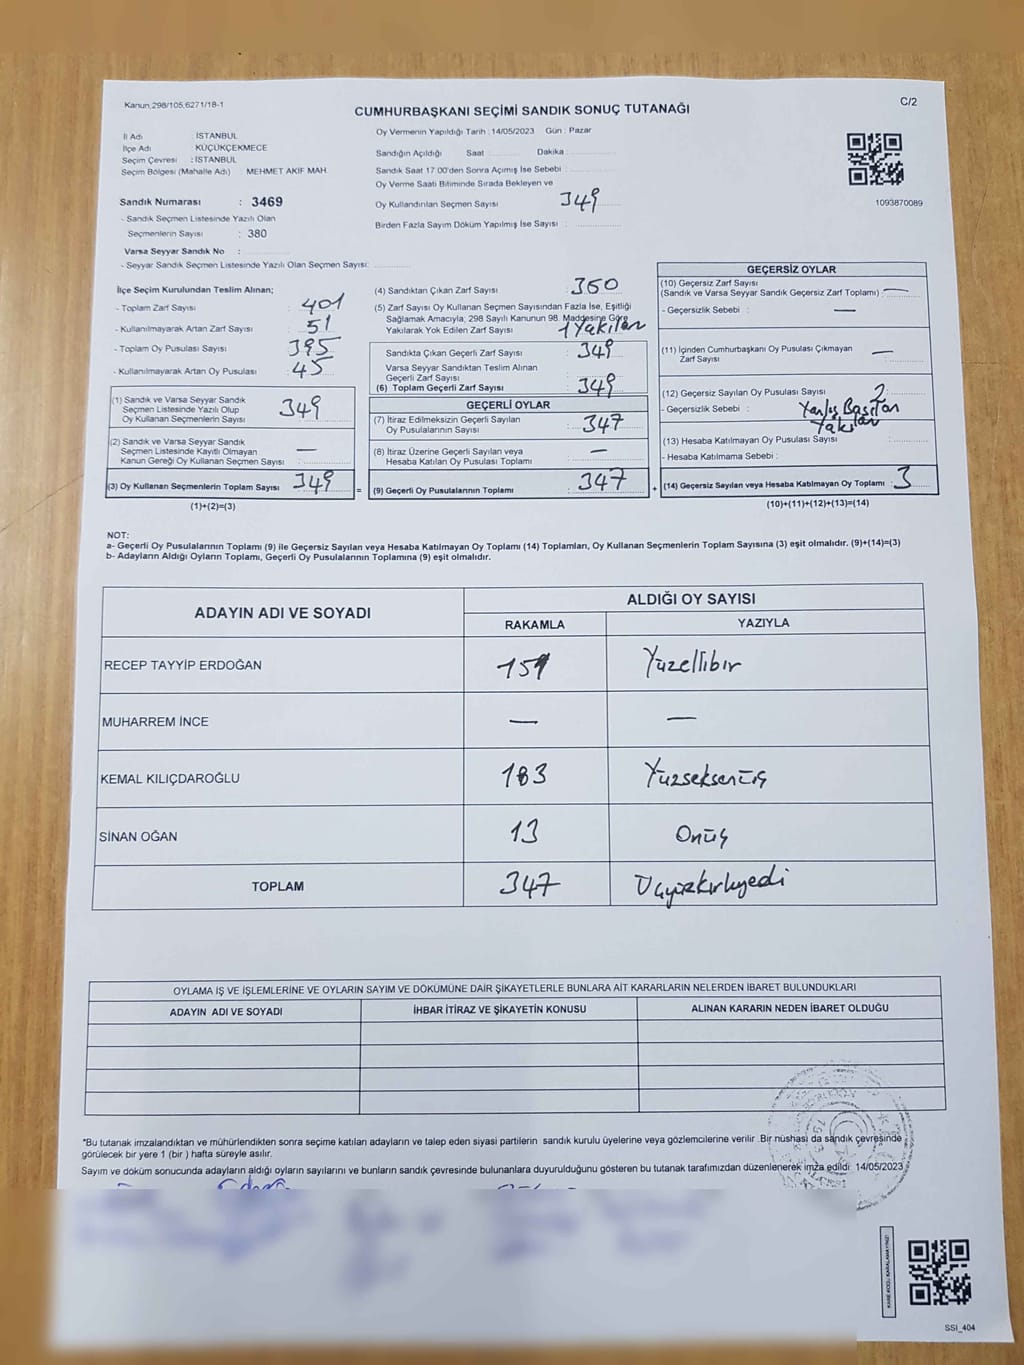 Kanun,298/105,6271/18-1
C/2
CUMHURBAŞKANI SEÇİMİ SANDIK SONUÇ TUTANAĞI
İl Adı : İSTANBUL
İlçe Adı : KÜÇÜKÇEKMECE
Seçim Çevresi : İSTANBUL
Seçim Bölgesi (Mahalle Adı) : MEHMET AKİF MAH.
Sandık Numarası : 3469
- Sandık Seçmen Listesinde Yazılı Olan
Seçmenlerin Sayısı : 380
Varsa Seyyar Sandık No :
- Seyyar Sandık Seçmen Listesinde Yazılı Olan Seçmen Sayısı:
Oy Vermenin Yapıldığı Tarih : 14/05/2023 Gün : Pazar
Sandığın Açıldığı Saat Dakika
Sandık Saat 17.00'den Sonra Açımış İse Sebebi :
Oy Verme Saati Bitiminde Sırada Bekleyen ve
Oy Kullandırılan Seçmen Sayısı : 349
Birden Fazla Sayım Döküm Yapılmış İse Sayısı :
1093870089
İlçe Seçim Kurulundan Teslim Alınan;
- Toplam Zarf Sayısı : 401
- Kullanılmayarak Artan Zarf Sayısı : 51
- Toplam Oy Pusulası Sayısı : 395
- Kullanılmayarak Artan Oy Pusulası : 45
(1) Sandık ve Varsa Seyyar Sandık
Seçmen Listesinde Yazılı Olup
Oy Kullanan Seçmenlerin Sayısı : 349
(2) Sandık ve Varsa Seyyar Sandık
Seçmen Listesinde Kayıtlı Olmayan
Kanun Gereği Oy Kullanan Seçmen Sayısı : —
(3) Oy Kullanan Seçmenlerin Toplam Sayısı : 349
(1)+(2)=(3)
=
(4) Sandıktan Çıkan Zarf Sayısı : 350
(5) Zarf Sayısı Oy Kullanan Seçmen Sayısından Fazla İse, Eşitliği
Sağlamak Amacıyla; 298 Sayılı Kanunun 98. Maddesine Göre
Yakılarak Yok Edilen Zarf Sayısı : 1 Yakılan
Sandıkta Çıkan Geçerli Zarf Sayısı : 349
Varsa Seyyar Sandıktan Teslim Alınan
Geçerli Zarf Sayısı :
(6) Toplam Geçerli Zarf Sayısı : 349
GEÇERLİ OYLAR
(7) İtiraz Edilmeksizin Geçerli Sayılan
Oy Pusulalarının Sayısı : 347
(8) İtiraz Üzerine Geçerli Sayılan veya
Hesaba Katılan Oy Pusulası Toplamı : —
(9) Geçerli Oy Pusulalarının Toplamı : 347
+
GEÇERSİZ OYLAR
(10) Geçersiz Zarf Sayısı
(Sandık ve Varsa Seyyar Sandık Geçersiz Zarf Toplamı) : —
- Geçersizlik Sebebi : —
(11) İçinden Cumhurbaşkanı Oy Pusulası Çıkmayan
Zarf Sayısı : —
(12) Geçersiz Sayılan Oy Pusulası Sayısı : 2
- Geçersizlik Sebebi : Yanlış Basılan
Yakılan
(13) Hesaba Katılmayan Oy Pusulası Sayısı :
- Hesaba Katılmama Sebebi :
(14) Geçersiz Sayılan veya Hesaba Katılmayan Oy Toplamı : 3
(10)+(11)+(12)+(13)=(14)
NOT:
a- Geçerli Oy Pusulalarının Toplamı (9) ile Geçersiz Sayılan veya Hesaba Katılmayan Oy Toplamı (14) Toplamları, Oy Kullanan Seçmenlerin Toplam Sayısına (3) eşit olmalıdır. (9)+(14)=(3)
b- Adayların Aldığı Oyların Toplamı, Geçerli Oy Pusulalarının Toplamına (9) eşit olmalıdır.
ADAYIN ADI VE SOYADI ALDIĞI OY SAYISI
RAKAMLA YAZIYLA
RECEP TAYYİP ERDOĞAN 151 Yüzellibir
MUHARREM İNCE — —
KEMAL KILIÇDAROĞLU 183 Yüzseksenüç
SİNAN OĞAN 13 Onüç
TOPLAM 347 Üçyüzkırkyedi
OYLAMA İŞ VE İŞLEMLERİNE VE OYLARIN SAYIM VE DÖKÜMÜNE DAİR ŞİKAYETLERLE BUNLARA AİT KARARLARIN NELERDEN İBARET BULUNDUKLARI
ADAYIN ADI VE SOYADI İHBAR İTİRAZ VE ŞİKAYETİN KONUSU ALINAN KARARIN NEDEN İBARET OLDUĞU
*Bu tutanak imzalandıktan ve mühürlendikten sonra seçime katılan adayların ve talep eden siyasi partilerin sandık kurulu üyelerine veya gözlemcilerine verilir .Bir nüshası da sandık çevresinde
görülecek bir yere 1 (bir ) hafta süreyle asılır.
Sayım ve döküm sonucunda adayların aldığı oyların sayılarını ve bunların sandık çevresinde bulunanlara duyurulduğunu gösteren bu tutanak tarafımızdan düzenlenerek imza edildi: 14/05/2023
KARE KODU KARALAMAYINIZ!
SSİ_404